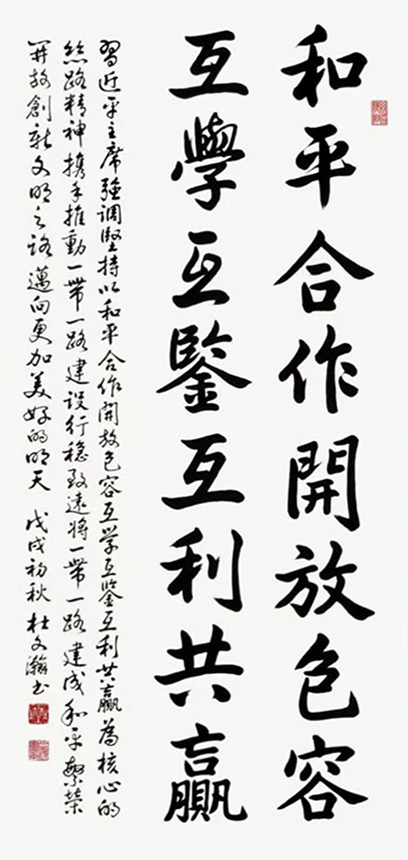 和平合作開放包容
互學互鑒互利共贏
習近平主席強調堅持以和平合作開放包容互学互鑒互利共贏為核心的
絲路精神攜手推動一帶一路建设行稳致遠將一帶一路建成和平繁榮
開放創新文明之路邁向更加美好的明天 戊戌初秋 杜文瀚书